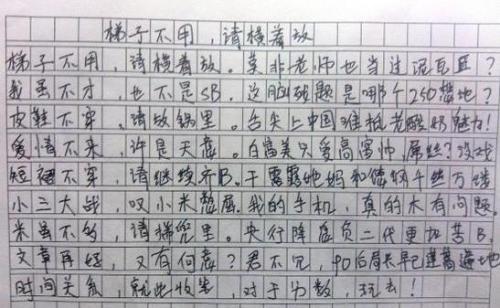 梯子不用，请横着放
梯子不用，请横着放。莫非老师也当过泥瓦匠？
我虽不才，也不是SB，这脑残题是哪个250想地？
皮鞋不穿，请放锅里。舌尖上中国难抵老酸奶魅力！
爱情不来，许是天意。白富美只爱高富帅，屌丝？没戏
短裙不穿，请继续齐B。干露露她妈和傻妞千丝万缕
小三大战，叹小米憋屈。我的手机，真的木有问题
米虽不多，请揣兜里。央行降息负二代更加苦B
文章再短，又有何意？君不见，90后局长早已遍地
时间关系，就此收笔，对于分数，玩去！